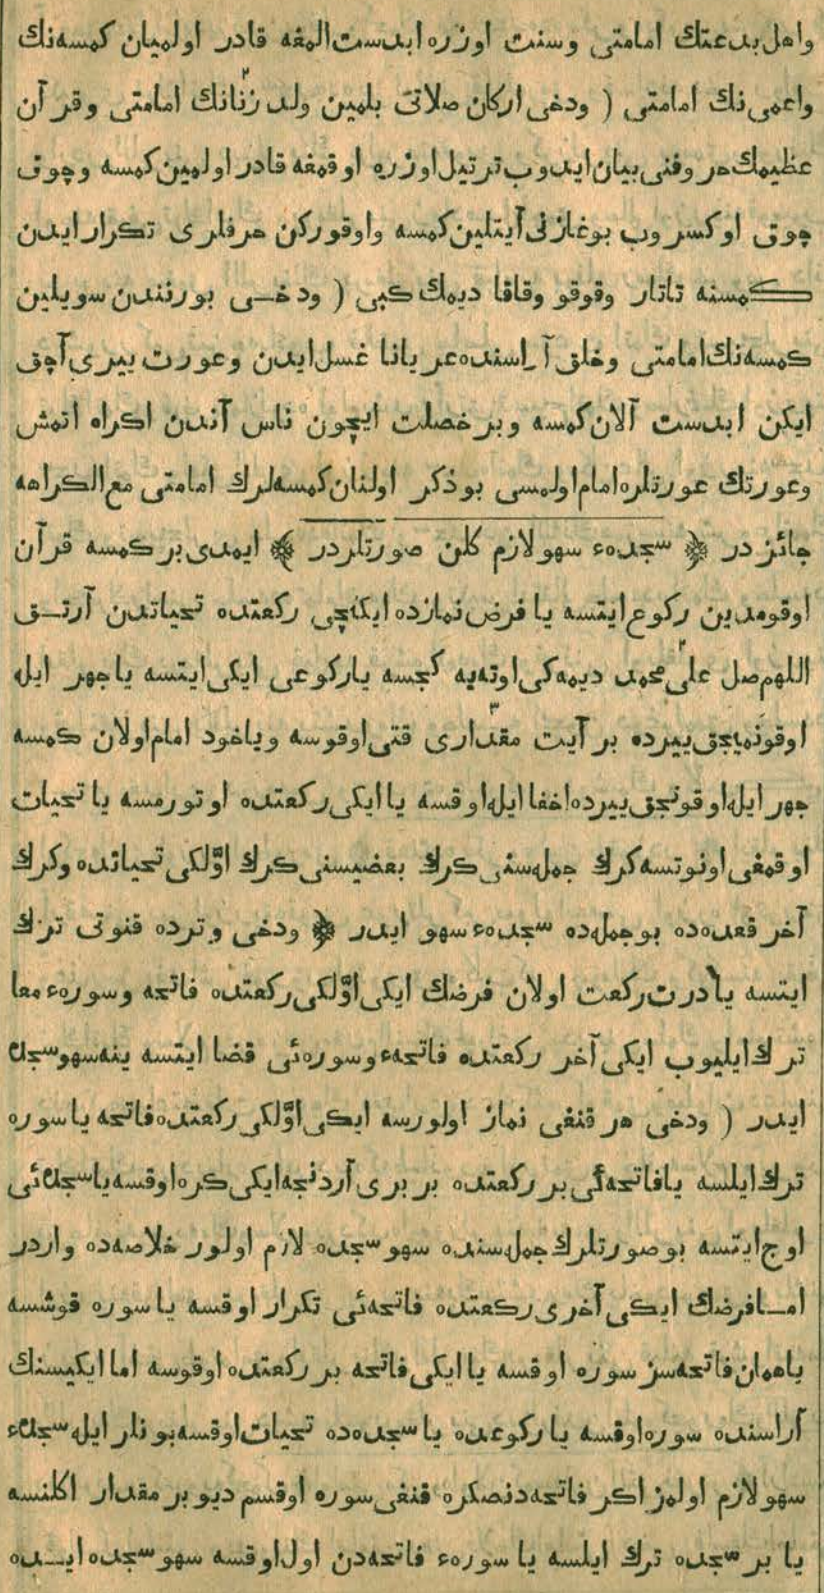 واهل بدعتك امامتى وسنت اوزره ابدست المغه قادر اولميان كمسه‌نك
واعمى نك امامتى ( ودخى اركان صلاتى بلمين ولد زنانك امامتى وقرآن
عظيمك حروفنى بيان ايدوب ترتيل اوزره اوقمغه قادر اولمين كمسه وچوق
چوق اوكسروب بوغازنى آيتلين كمسه واوقوركن حرفلرى تكرار ايدن
كمسنه تاتار وقوقو وقاقا ديمك كبى ( ودخى بورنندن سويلين
كمسه‌نك امامتى وخلق آراسنده عريانا غسل ايدن وعورت ييرى آچق
ايكن ابدست آلان كمسه وبر خصلت ايچون ناس آندن اكراه اتمش
وعورتك عورتلره امام اولمسى بو ذكر اولنان كمسه‌لرك امامتى مع الكراهه
جائز در ﴿ سجدهء سهو لازم كلن صورتلردر ﴾ ايمدى بر كمسه قرآن
اوقومدين ركوع ايتسه يا فرض نمازده ايكنچى ركعتده تحياتدن آرتق
اللهم صل على محمد ديمه‌كى اوته‌يه كچسه يا ركوعى ايكى ايتسه يا جهر ايله
اوقونميجق ييرده بر آيت مقدارى قتى اوقوسه وياخود امام اولان كمسه
جهر ايله اوقونجق ييرده اخفا ايله اوقسه يا ايكى ركعتده اوتورمسه يا تحيات
اوقمغى اونوتسه كرك جمله‌سنى كرك بعضيسنى كرك اوّلكى تحياتده وكرك
آخر قعده‌ده بو جمله‌ده سجدهء سهو ايدر ﴿ ودخى وترده قنوتى ترك
ايتسه يا درت ركعت اولان فرضك ايكى اوّلكى ركعتده فاتحه وسورهء معا
ترك ايليوب ايكى آخر ركعتده فاتحهء وسوره‌ئى قضا ايتسه ينه سهو سجده
ايدر ( ودخى هر قنغى نماز اولورسه ايكى اوّلكى ركعتده فاتحه يا سوره
ترك ايلسه يا فاتحه‌ئى بر ركعتده بر برى آردنجه ايكى كره اوقسه يا سجده‌ئى
اوچ ايتسه بو صورتلرك جمله‌سنده سهو سجده لازم اولور خلاصه‌ده واردر
اما فرضك ايكى آخرى ركعتده فاتحه‌ئى تكرار اوقسه يا سوره قوشسه
يا همان فاتحه‌سز سوره اوقسه يا ايكى فاتحه بر ركعتده اوقوسه اما ايكيسنك
آراسنده سوره اوقسه يا ركوعده يا سجده‌ده تحيات اوقسه بونلر ايله سجدهء
سهو لازم اولمز اكر فاتحه‌دنصكره قنغى سوره اوقسم ديو بر مقدار اكلنسه
يا بر سجده ترك ايلسه يا سورهء فاتحه‌دن اول اوقسه سهو سجده ايده